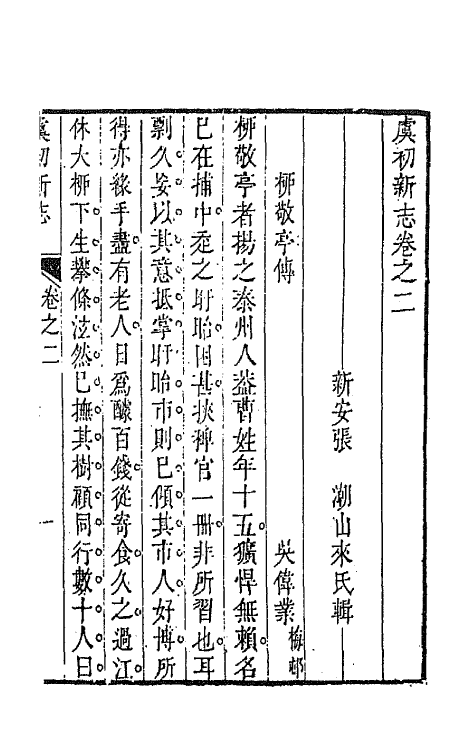 虞初新志卷之二
新安張　潮山來氏輯
柳敬亭傳　吳偉業梅邨
柳敬亭者揚之泰州人葢曹姓年十五。獷悍無賴。名
已在捕中。走之盱眙。困甚。挾稗官一冊。非所習也。耳
剽久。妄以其意抵掌盱眙市。則已傾其市人。好博。所
得亦緣手盡。有老人。日爲醵百錢。從寄食。久之。過江。
休大柳下。生攀條泫然。已撫其樹。顧同行數十人曰
虞初新志　卷之二　一